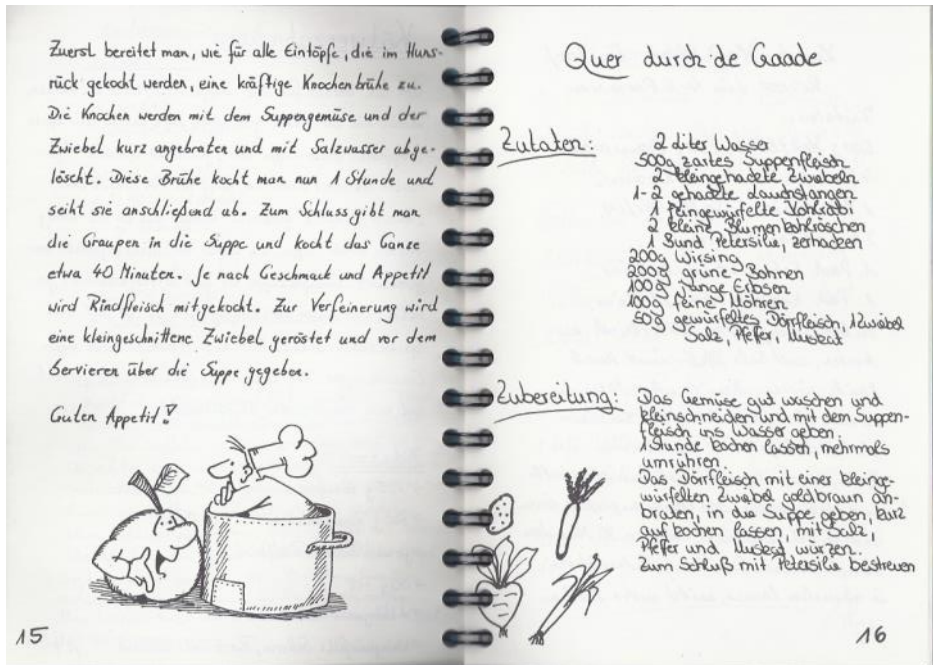 Zuerst bereitet man, wie für alle Eintöpfe, die im Huns-
rück gekocht werden, eine kräftige Knochenbrühe zu.
Die Knochen werden mit dem Suppengemüse und der
Zwiebel kurz angebraten und mit Salzwasser abge-
löscht. Diese Brühe kocht man nun 1 Stunde und
seiht sie anschließend ab. Zum Schluss gibt man
die Graupen in die Suppe und kocht das Ganze
etwa 40 Minuten. Je nach Geschmack und Appetit
wird Rindfleisch mitgekocht. Zur Verfeinerung wird
eine kleingeschnittene Zwiebel geröstet und vor dem
Servieren über die Suppe gegeben.
Guten Appetit!
15
Quer durch de Gaade
Zutaten:
2 Liter Wasser
500g zartes Suppenfleisch
2 kleingehackte Zwiebeln
1-2 gehackte Lauchstangen
1 feingewürfelte Kohlrabi
2 kleine Blumenkohlröschen
1 Bund Petersilie, zerhacken
200g Wirsing
200g grüne Bohnen
100g junge Erbsen
100g feine Möhren
50g gewürfeltes Dörrfleisch, 1 Zwiebel
Salz, Pfefer, Muskat
Zubereitung:
Das Gemüse gut waschen und
kleinschneiden und mit dem Suppen-
fleisch ins Wasser geben.
1 Stunde kochen lassen, mehrmals
umrühren.
Das Dörrfleisch mit einer kleinge-
würfelten Zwiebel goldbraun an-
braten, in die Suppe geben, kurz
auf kochen lassen, mit Salz,
Pfefer und Muskat würzen.
Zum Schluß mit Petersilie bestreuen
16